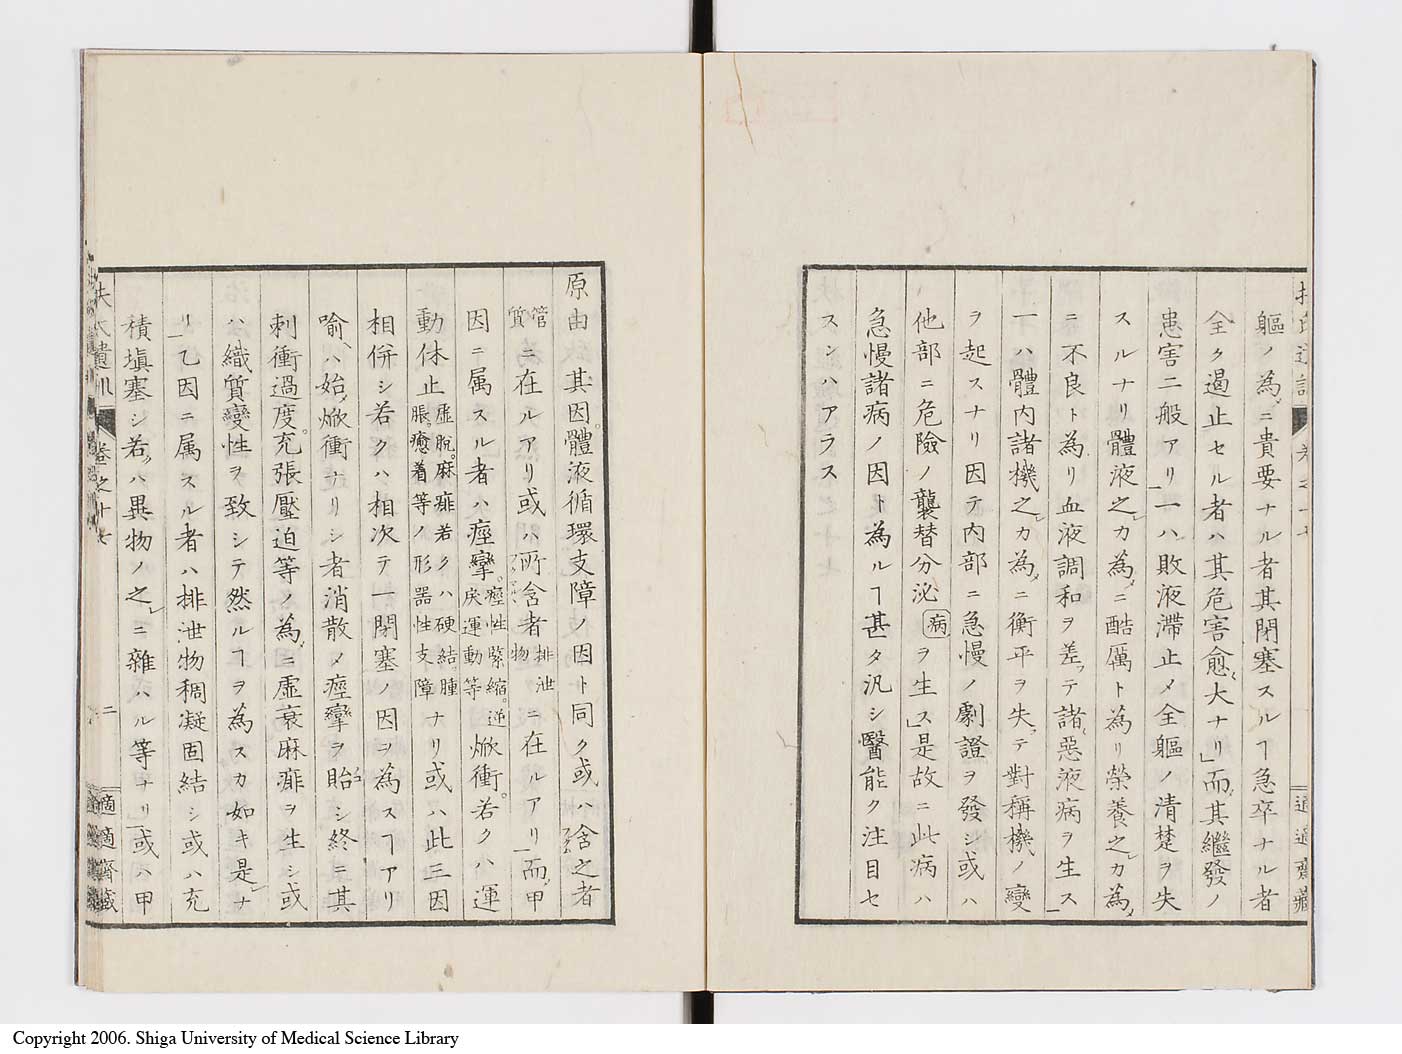 軀ノ為ニ貴要ナル者其閉塞スルヿ急卒ナル者
全ク遏止セル者ハ其危害愈大ナリ」而其繼發ノ
患害二般アリ一ハ敗液滯止メ全軀ノ清楚ヲ失
スルナリ體液之カ為ニ酷厲ト為リ榮養之カ為
ニ不良ト為リ血液調和ヲ差テ諸惡液病ヲ生ス
一ハ體内諸機之カ為ニ衡平ヲ失テ對稱機ノ變
ヲ起スナリ因テ内部ニ急慢ノ劇證ヲ發シ或ハ
他部ニ危險ノ襲替分泌病ヲ生ス」是故ニ此病ハ
急慢諸病ノ因ト為ルヿ甚タ汎シ醫能ク注目セ
スンハアラス
適適齋藏
原由 其因體液循環支障ノ因ト同ク或ハ舍之者
管質ニ在ルアリ或ハ所舍者排泄物ニ在ルアリ而甲
因ニ属スル者ハ痙攣痙性緊縮逆戻運動等焮衝若クハ運
動休止虚脱麻痺若クハ硬結腫脹癒着等ノ形器性支障ナリ或ハ此三因
相併シ若クハ相次テ一閉塞ノ因ヲ為スヿアリ
喻ハ始焮衝ナリシ者消散メ痙攣ヲ貽シ終ニ其
刺衝過度充張壓迫等ノ為ニ虚衰麻痺ヲ生シ或
ハ織質變性ヲ致シテ然ルヿヲ為スカ如キ是ナ
リ乙因ニ属スル者ハ排泄物稠凝固結シ或ハ充
積塡塞シ若ハ異物ノ之ニ雜ハル等ナリ或ハ甲
扶氏遺訓 卷之十七 二 適適齋藏
Copyright 2006. Shiga University of Medical Science Library